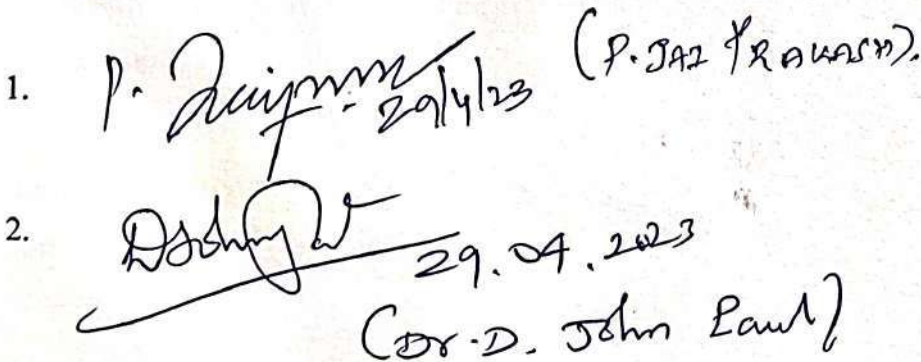 1. P. 29/4/23 (P. JAI PRAKASH).
2. 29.04.2023
(Dr. D. John Paul)